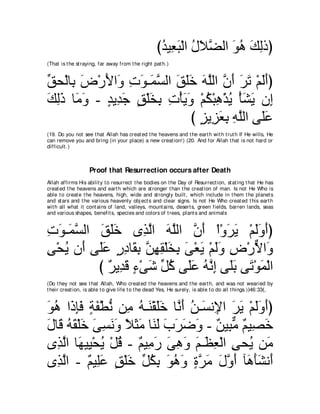 (ذَلِكَ هُوَ الضَّلاَلُ الْبَعِيدُ)
(That is the straying, far away from the right path.)
(أَلَمْ تَرَ أَنَّ اللَّهَ خَلَقَ السَّمَـوَتِ وَالأَرْضَ بِالْحَقِّ
إِن يَشَأْ يُذْهِبْكُمْ وَيَأْتِ بِخَلْقٍ جَدِيدٍ - وَمَا ذَلِكَ
عَلَى اللَّهِ بِعَزِيزٍ )
(19. Do you not see that Allah has created the heavens and the earth with truth If He wills, He
can remove you and bring (in your place) a new creation!) (20. And for Allah that is not hard or
difficult.)
Proof that Resurrection occurs after Death
Allah affirms His ability to resurrect the bodies on the Day of Resurrection, stating that He has
created the heavens and earth which are stronger than the creation of man. Is not He Who is
able to create the heavens, high, wide and strongly built, which include in them the planets
and stars and the various heavenly objects and clear signs. Is not He Who created this earth
with all what it contains of land, valleys, mountains, deserts, green fields, barren lands, seas
and various shapes, benefits, species and colors of trees, plants and animals
(أَوَلَمْ يَرَوْاْ أَنَّ اللَّهَ الَّذِى خَلَقَ السَّمَـوَتِ
وَالأَرْضَ وَلَمْ يَعْىَ بِخَلْقِهِنَّ بِقَادِرٍ عَلَى أَن يُحْىِ
الْمَوْتَى بَلَى إِنَّهُ عَلَى كُلِّ شَىْءٍ قَدِيرٌ )
(Do they not see that Allah, Who created the heavens and the earth, and was not wearied by
their creation, is able to give life to the dead Yes, He surely, is able to do all things.)(46:33),
(أَوَلَمْ يَرَ الإِنسَـنُ أَنَّا خَلَقْنَـهُ مِن نُّطْفَةٍ فَإِذَا هُوَ
خَصِيمٌ مُّبِينٌ - وَضَرَبَ لَنَا مَثَلاً وَنَسِىَ خَلْقَهُ قَالَ
مَن يُحىِ الْعِظَـمَ وَهِىَ رَمِيمٌ - قُلْ يُحْيِيهَا الَّذِى
أَنشَأَهَآ أَوَّلَ مَرَّةٍ وَهُوَ بِكُلِّ خَلْقٍ عَلِيمٌ - الَّذِى